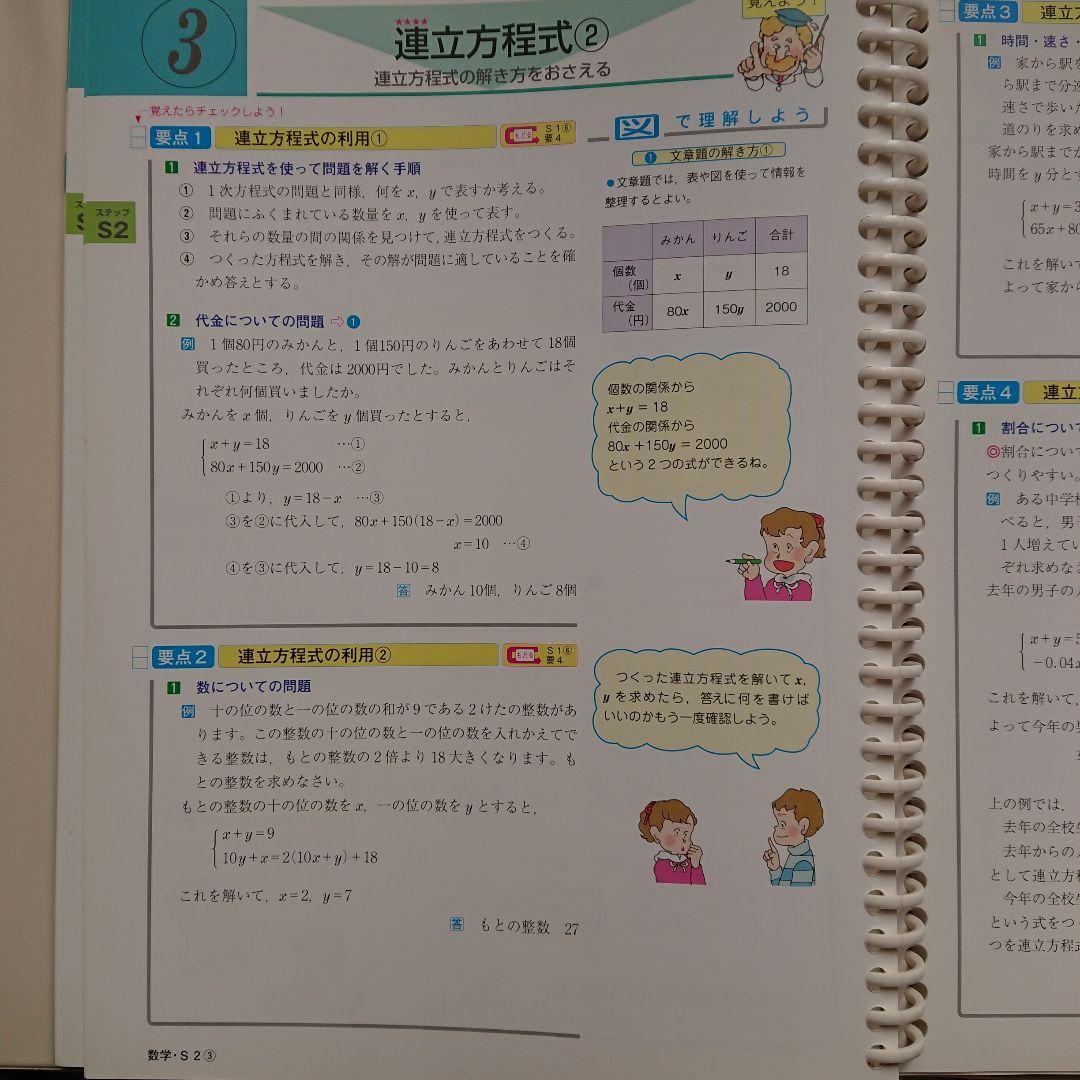 3
連立方程式②
連立方程式の解き方をおさえる
覚えよう！
覚えたらチェックしよう！
要点1 連立方程式の利用①
もどる S1⑥ 要4
1 連立方程式を使って問題を解く手順
① 1次方程式の問題と同様，何をx，yで表すか考える。
② 問題にふくまれている数量をx，yを使って表す。
③ それらの数量の間の関係を見つけて，連立方程式をつくる。
④ つくった方程式を解き，その解が問題に適していることを確
かめ答えとする。
ステップ
S2
2 代金についての問題 ⇨❶
例 1個80円のみかんと，1個150円のりんごをあわせて18個
買ったところ，代金は2000円でした。みかんとりんごはそ
れぞれ何個買いましたか。
みかんをx個，りんごをy個買ったとすると，
x+y=18 …①
80x+150y=2000 …②
①より，y=18−x …③
③を②に代入して，80x+150(18−x)=2000
x=10 …④
④を③に代入して，y=18−10=8
答 みかん10個，りんご8個
図で理解しよう
❶ 文章題の解き方①
●文章題では，表や図を使って情報を
整理するとよい。
みかん りんご 合計
個数(個) x y 18
代金(円) 80x 150y 2000
個数の関係から
x+y=18
代金の関係から
80x+150y=2000
という2つの式ができるね。
要点2 連立方程式の利用②
もどる S1⑥ 要4
1 数についての問題
例 十の位の数と一の位の数の和が9である2けたの整数があ
ります。この整数の十の位の数と一の位の数を入れかえてで
きる整数は，もとの整数の2倍より18大きくなります。も
との整数を求めなさい。
もとの整数の十の位の数をx，一の位の数をyとすると，
x+y=9
10y+x=2(10x+y)+18
これを解いて，x=2，y=7
答 もとの整数 27
つくった連立方程式を解いてx，
yを求めたら，答えに何を書けば
いいのかもう一度確認しよう。
数学・S2③
要点3 連立
1 時間・速さ・
例 家から駅を
ら駅まで分速
速さで歩いた
道のりを求め
家から駅までか
時間をy分とす
x+y=3
65x+80
これを解いて
よって家から
要点4 連立
1 割合について
◎割合につい
つくりやすい。
例 ある中学校
べると，男子
1人増えてい
ぞれ求めなさ
去年の男子の人
x+y=5
−0.04x
これを解いて，
よって今年の男
上の例では，
去年の全校生
去年からの人
として連立方程
今年の全校生
という式をつ
つを連立方程式